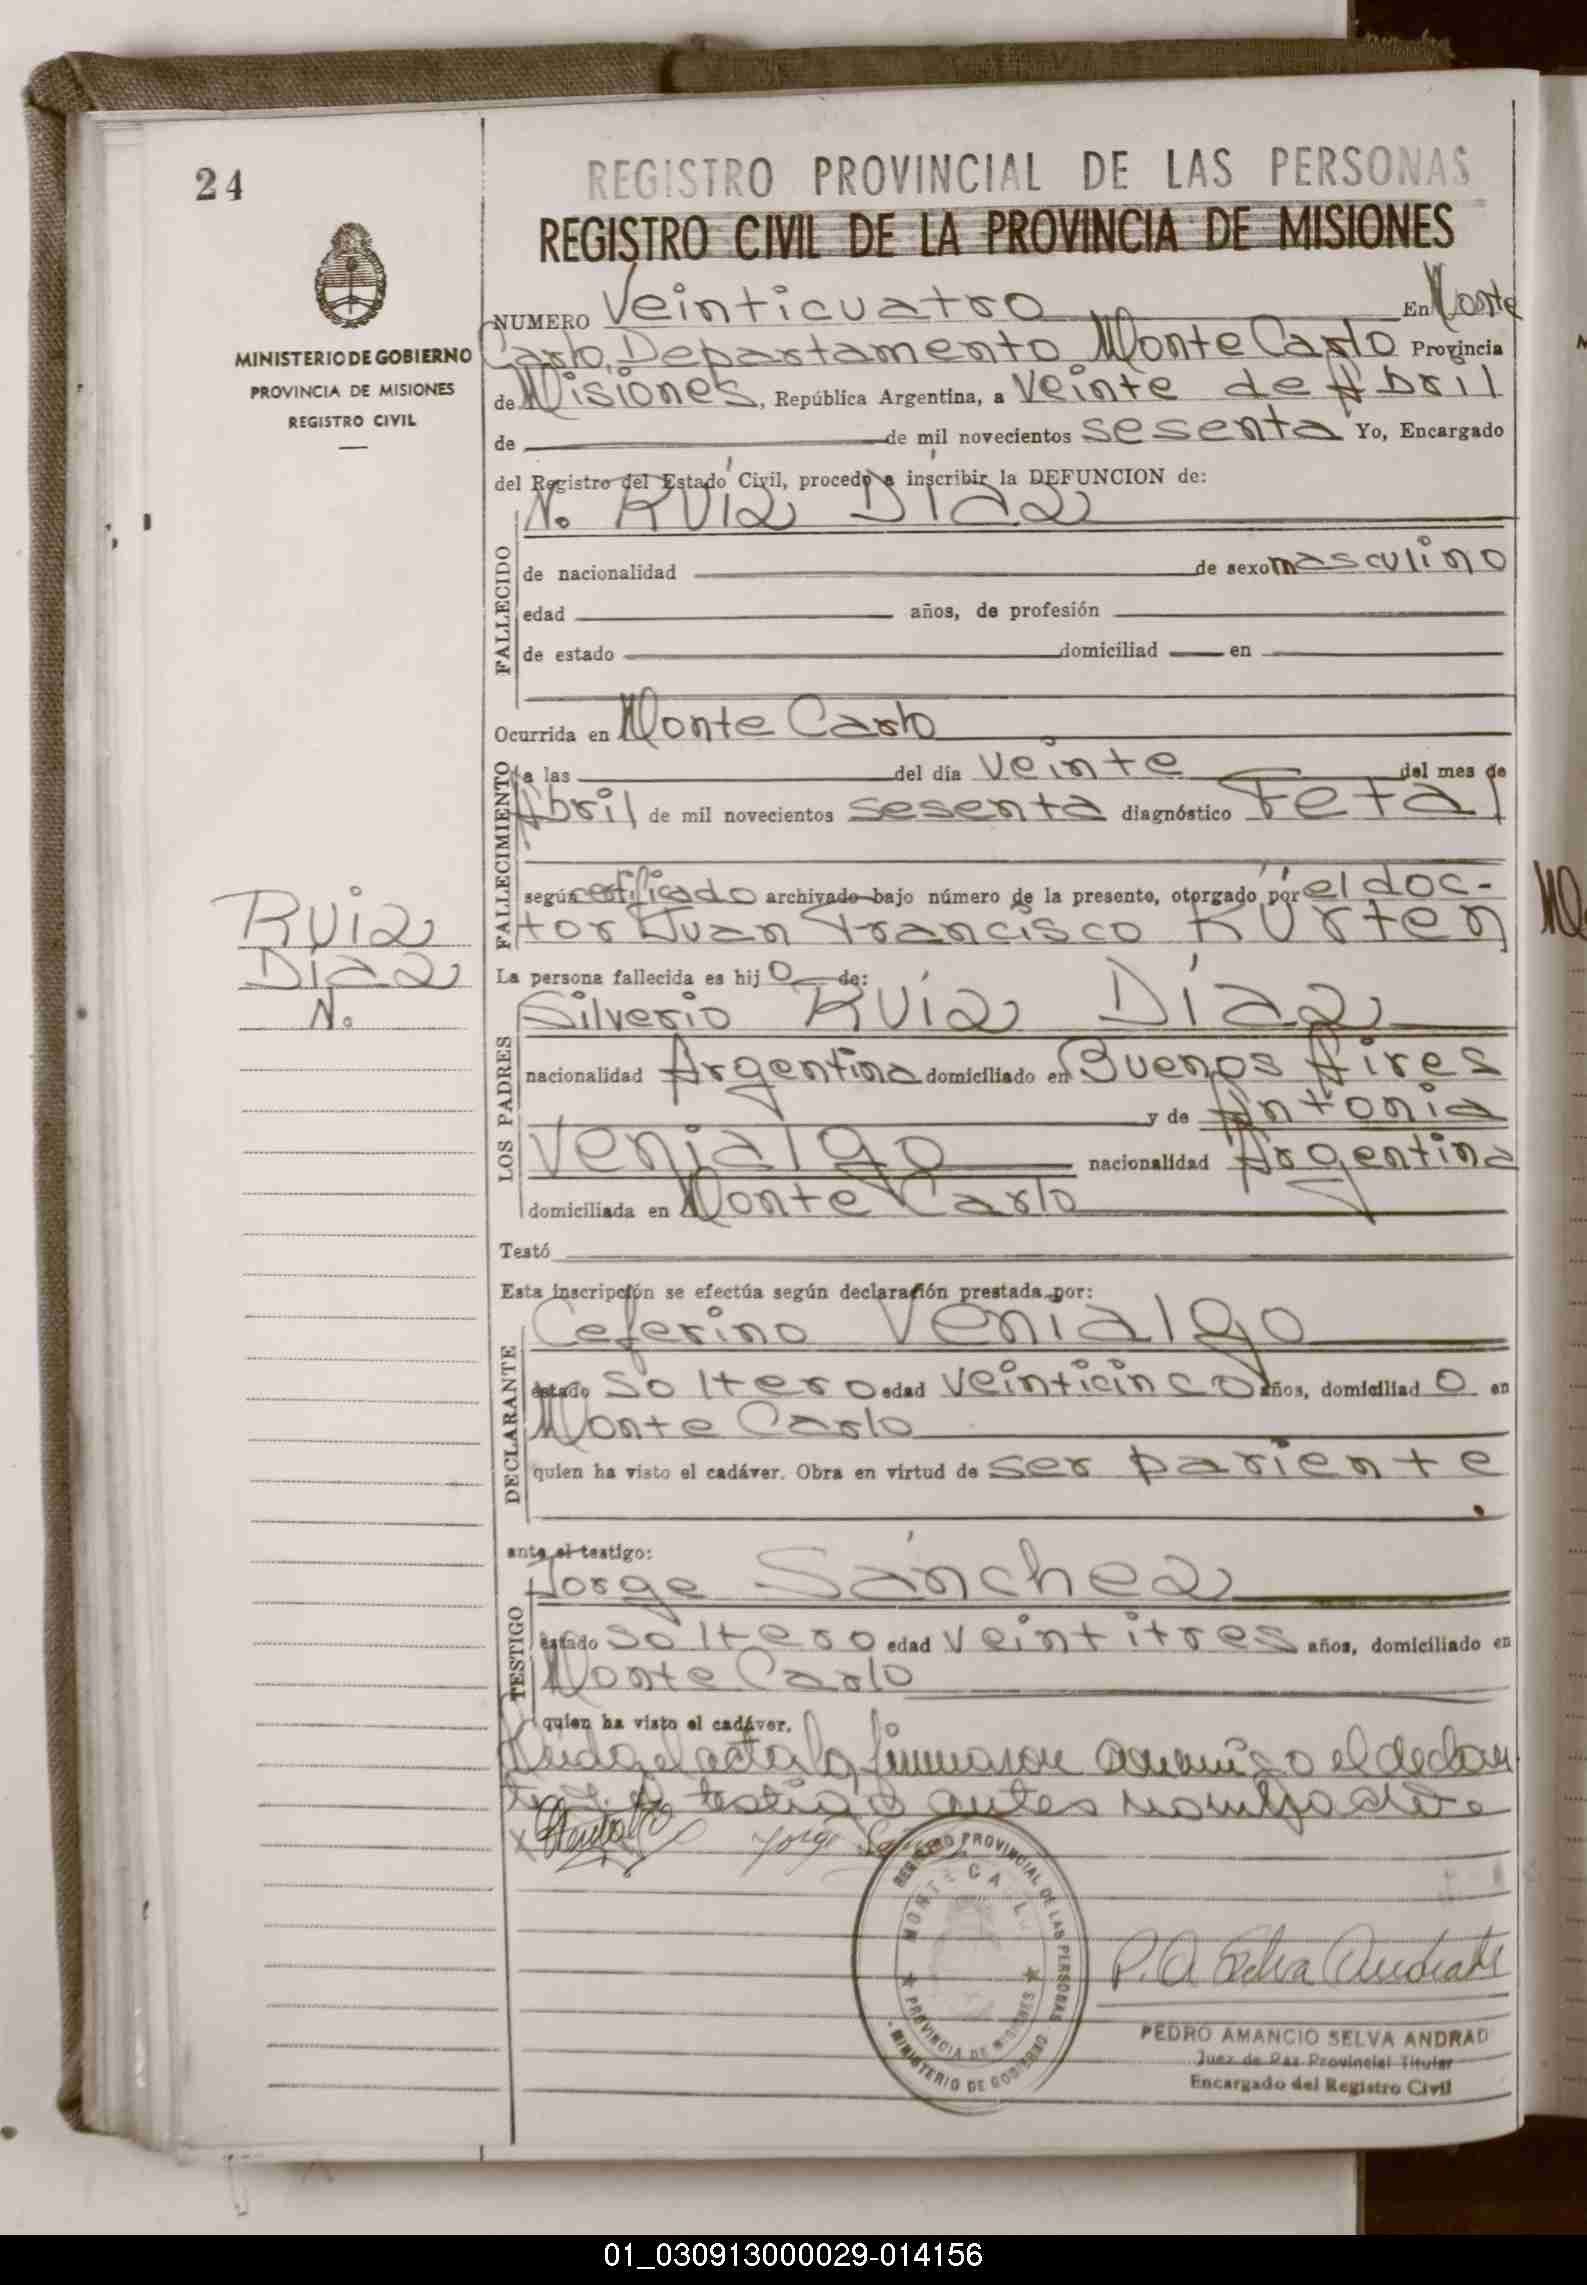 24
REGISTRO PROVINCIAL DE LAS PERSONAS
REGISTRO CIVIL DE LA PROVINCIA DE MISIONES
MINISTERIO DE GOBIERNO
PROVINCIA DE MISIONES
REGISTRO CIVIL
NUMERO Veinticuatro En Monte
Carlo, Departamento Monte Carlo Provincia
de Misiones, República Argentina, a Veinte de Abril
de de mil novecientos sesenta Yo, Encargado
del Registro del Estado Civil, procedo a inscribir la DEFUNCION de:
N. RUIZ DÍAZ
FALLECIDO
de nacionalidad de sexo masculino
edad años, de profesión
de estado domiciliad en
Ocurrida en Monte Carlo
FALLECIMIENTO
a las del día veinte del mes de
Abril de mil novecientos sesenta diagnóstico Fetal
según certificado archivado bajo número de la presente, otorgado por el doc-
tor Juan Francisco Kürten
RUIZ
DIAZ
N.
La persona fallecida es hijo de:
LOS PADRES
Silverio RUÍZ DÍAZ
nacionalidad Argentina domiciliado en Buenos Aires
y de Antonia
Venialgo nacionalidad Argentina
domiciliada en Monte Carlo
Testó
Esta inscripción se efectúa según declaración prestada por:
DECLARANTE
Ceferino Venialgo
estado soltero edad veinticinco años, domiciliado en
Monte Carlo
quien ha visto el cadáver. Obra en virtud de ser pariente
.
ante el testigo:
TESTIGO
Jorge Sánchez
estado soltero edad veintitres años, domiciliado en
Monte Carlo
quien ha visto el cadáver.
Leida el acta la firmaron conmigo el declaran
te y el testigo antes
Jorge
REGISTRO PROVINCIAL DE LAS PERSONAS
MONTE CARLO
PROVINCIA DE MISIONES
MINISTERIO DE GOBIERNO
P. A. Selva Andrade
PEDRO AMANCIO SELVA ANDRAD
Juez de Paz Provincial Titular
Encargado del Registro Civil
01_030913000029-014156